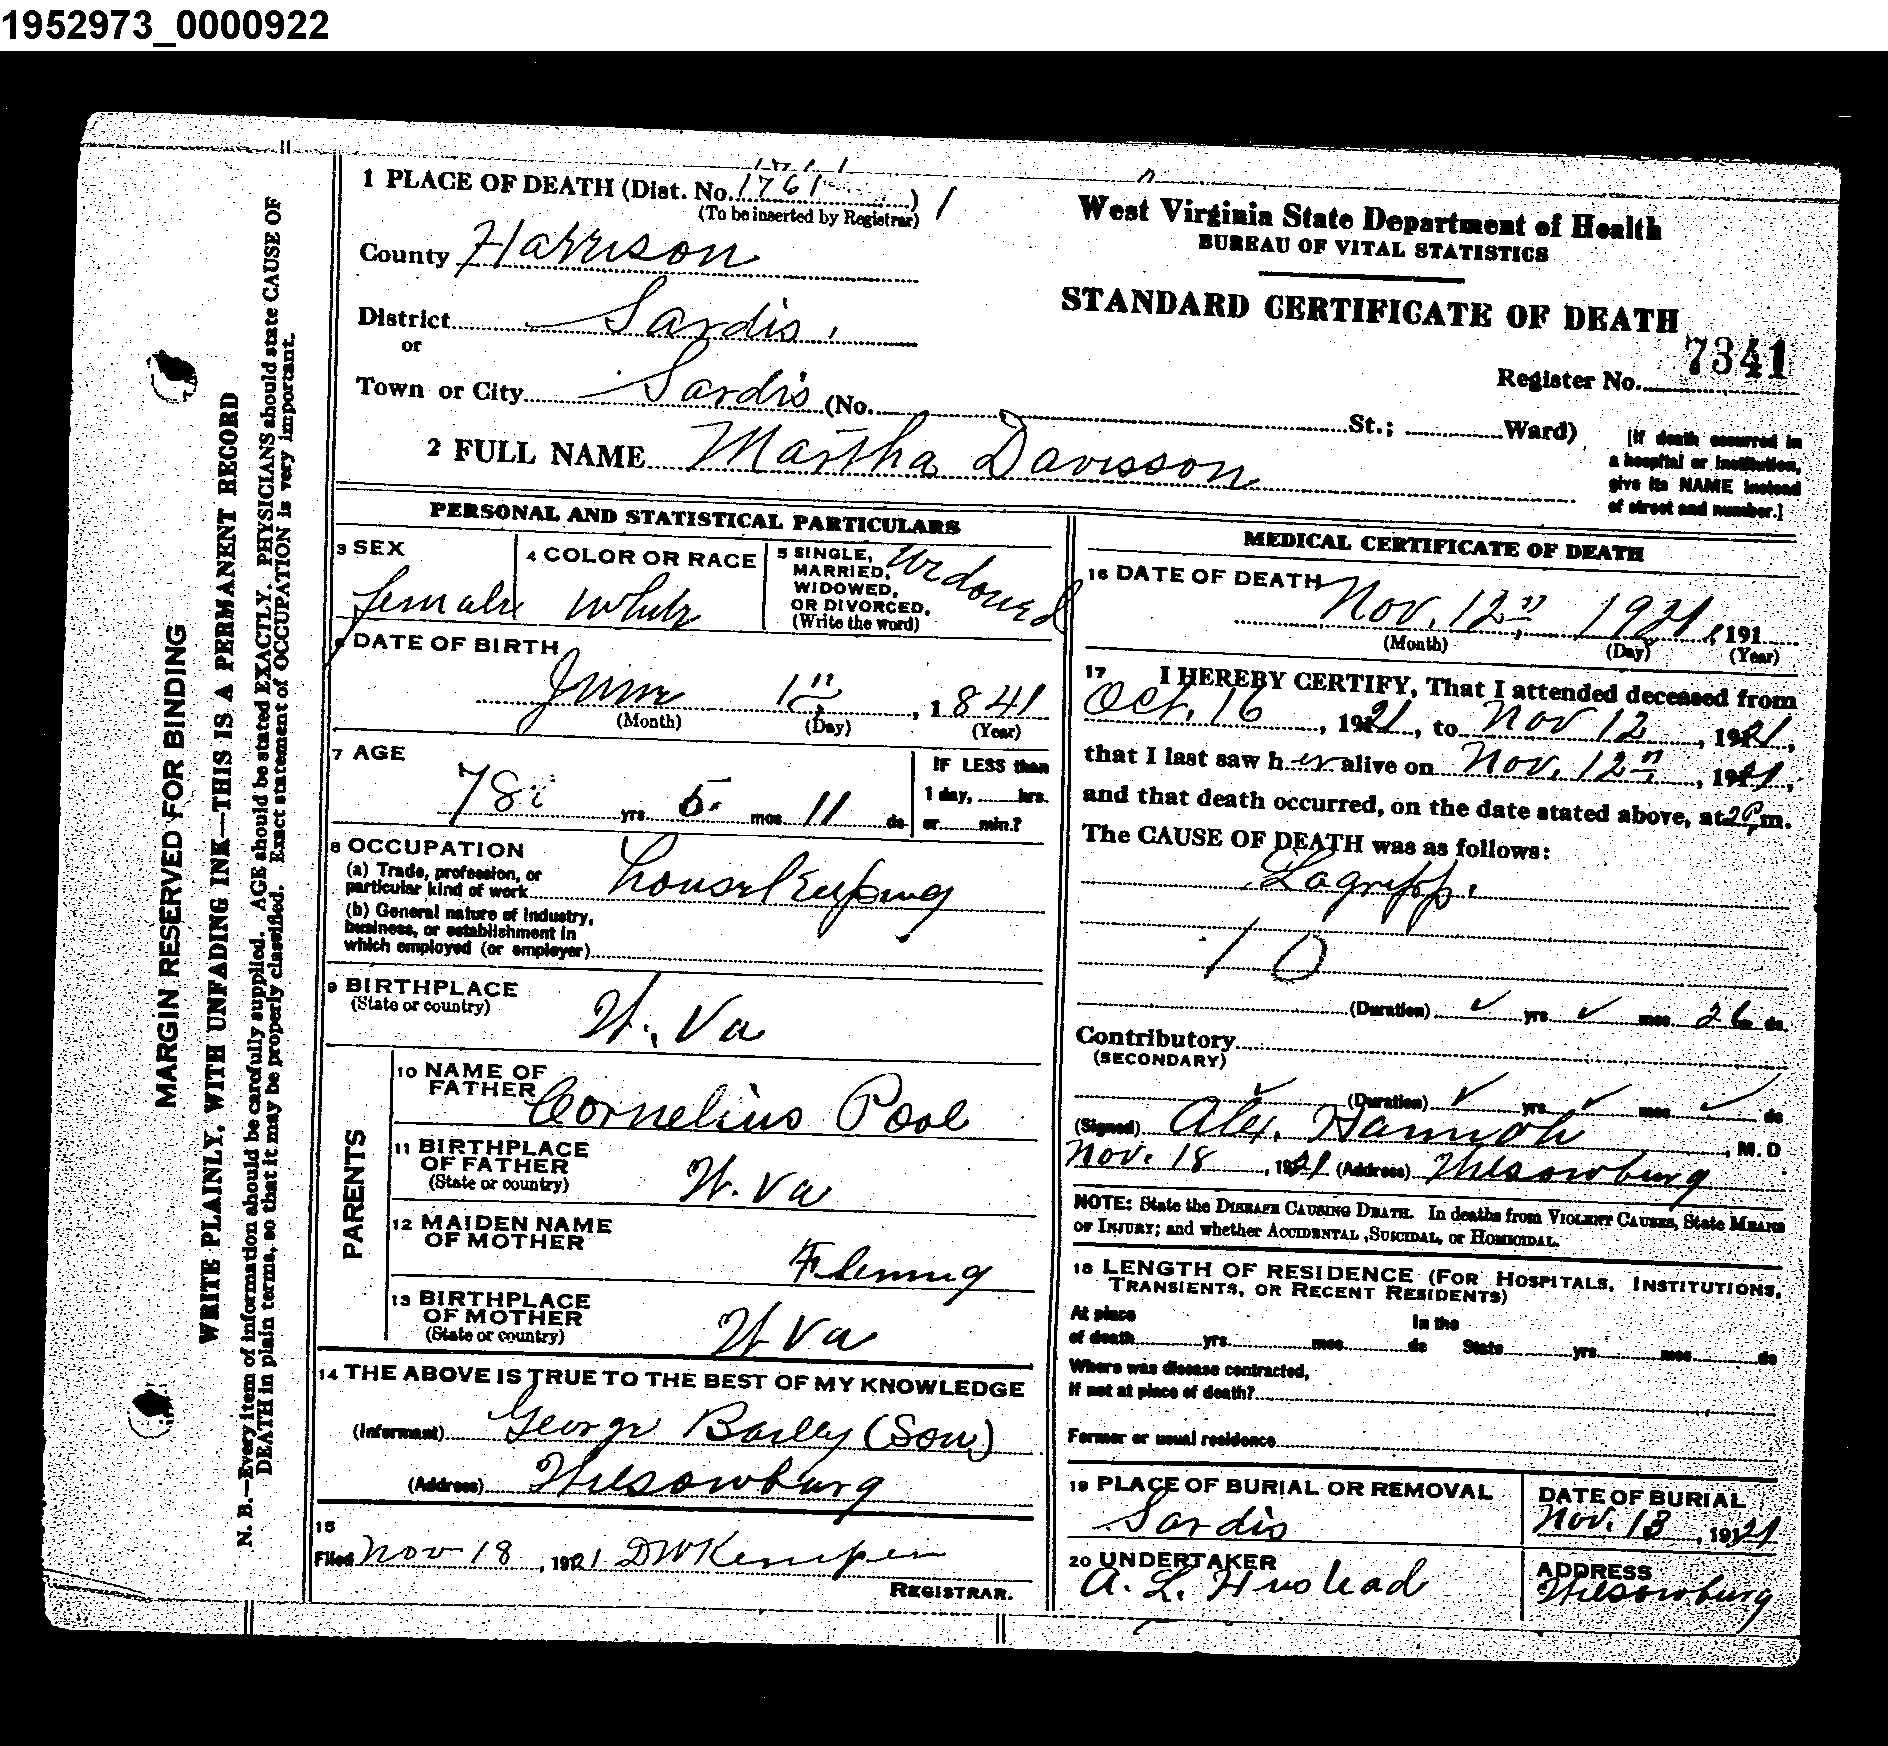 1952973_0000922
1 PLACE OF DEATH (Dist. No. 1761 ) 1
(To be inserted by Registrar)
County Harrison
District Sardis
or
Town or City Sardis (No. St.; Ward)
2 FULL NAME Martha Davisson
West Virginia State Department of Health
BUREAU OF VITAL STATISTICS
STANDARD CERTIFICATE OF DEATH
Register No. 7341
[If death occurred in
a hospital or institution,
give its NAME instead
of street and number.]
MARGIN RESERVED FOR BINDING
WRITE PLAINLY, WITH UNFADING INK—THIS IS A PERMANENT RECORD
N. B.—Every item of information should be carefully supplied. AGE should be stated EXACTLY. PHYSICIANS should state CAUSE OF
DEATH in plain terms, so that it may be properly classified. Exact statement of OCCUPATION is very important.
PERSONAL AND STATISTICAL PARTICULARS
3 SEX
female
4 COLOR OR RACE
White
5 SINGLE,
MARRIED,
WIDOWED,
OR DIVORCED.
(Write the word)
Widowed
6 DATE OF BIRTH
June 1" , 1841
(Month) (Day) (Year)
7 AGE
78 yrs 5 mos 11 ds
IF LESS than
1 day, hrs.
or min.?
8 OCCUPATION
(a) Trade, profession, or
particular kind of work housekeeping
(b) General nature of industry,
business, or establishment in
which employed (or employer)
9 BIRTHPLACE
(State or country)
W. Va
PARENTS
10 NAME OF
FATHER Cornelius Pool
11 BIRTHPLACE
OF FATHER
(State or country)
W. Va
12 MAIDEN NAME
OF MOTHER
Fleming
13 BIRTHPLACE
OF MOTHER
(State or country)
W Va
14 THE ABOVE IS TRUE TO THE BEST OF MY KNOWLEDGE
(Informant) George Bailey (Son)
(Address) Wilsonburg
15
Filed Nov 18 , 1921 D W Kemper
REGISTRAR.
MEDICAL CERTIFICATE OF DEATH
16 DATE OF DEATH
Nov. 12" 1921, 191
(Month) (Day) (Year)
17 I HEREBY CERTIFY, That I attended deceased from
Oct. 16 , 1921, to Nov 12 , 1921,
that I last saw her alive on Nov. 12" , 1921,
and that death occurred, on the date stated above, at 2 P m.
The CAUSE OF DEATH was as follows:
Lagripp.
10
(Duration) ✓ yrs ✓ mos 26 ds.
Contributory
(SECONDARY)
✓ (Duration) ✓ yrs ✓ mos ✓ ds
(Signed) Alex. Hannah , M. D
Nov. 18 , 1921 (Address) Wilsonburg
NOTE: State the DISEASE CAUSING DEATH. In deaths from VIOLENT CAUSES, State MEANS
OF INJURY; and whether ACCIDENTAL ,SUICIDAL, or HOMICIDAL.
18 LENGTH OF RESIDENCE (FOR HOSPITALS, INSTITUTIONS,
TRANSIENTS, OR RECENT RESIDENTS)
At place In the
of death yrs mos ds State yrs mos ds
Where was disease contracted,
If not at place of death?
Former or usual residence
19 PLACE OF BURIAL OR REMOVAL
Sardis
DATE OF BURIAL
Nov. 13 , 1921
20 UNDERTAKER
A. L. Hustead
ADDRESS
Wilsonburg